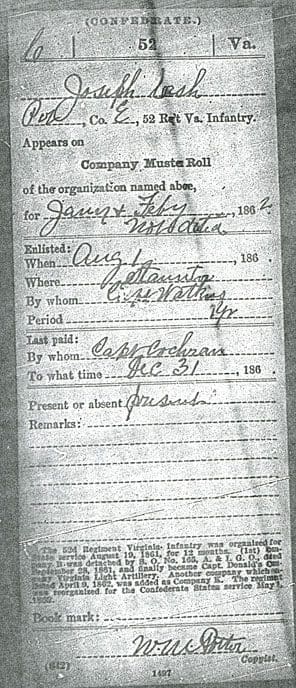 (CONFEDERATE.)
6 | 52 | Va.
Joseph Lash
Pvt, Co. E, 52 Reg't Va. Infantry.
Appears on
Company Muster Roll
of the organization named above,
for Jany & Feby, 1862.
Not dated
Enlisted:
When Aug 1, 186 .
Where Staunton
By whom
Period 1 yr
Last paid:
By whom Capt. Cochran
To what time Dec 31, 186 .
Present or absent present
Remarks:
The 52d Regiment Virginia Infantry was organized for
State service August 19, 1861, for 12 months. (1st) Com-
pany B was detached by S. O. No. 165, A. & I. G. O., dated
September 28, 1861, and finally became Capt. Donald's Com-
pany Virginia Light Artillery. Another company which en-
listed April 9, 1862, was added as Company K. The regiment
was reorganized for the Confederate States service May 1,
1862.
Book mark:
(642) Copyist.
1497